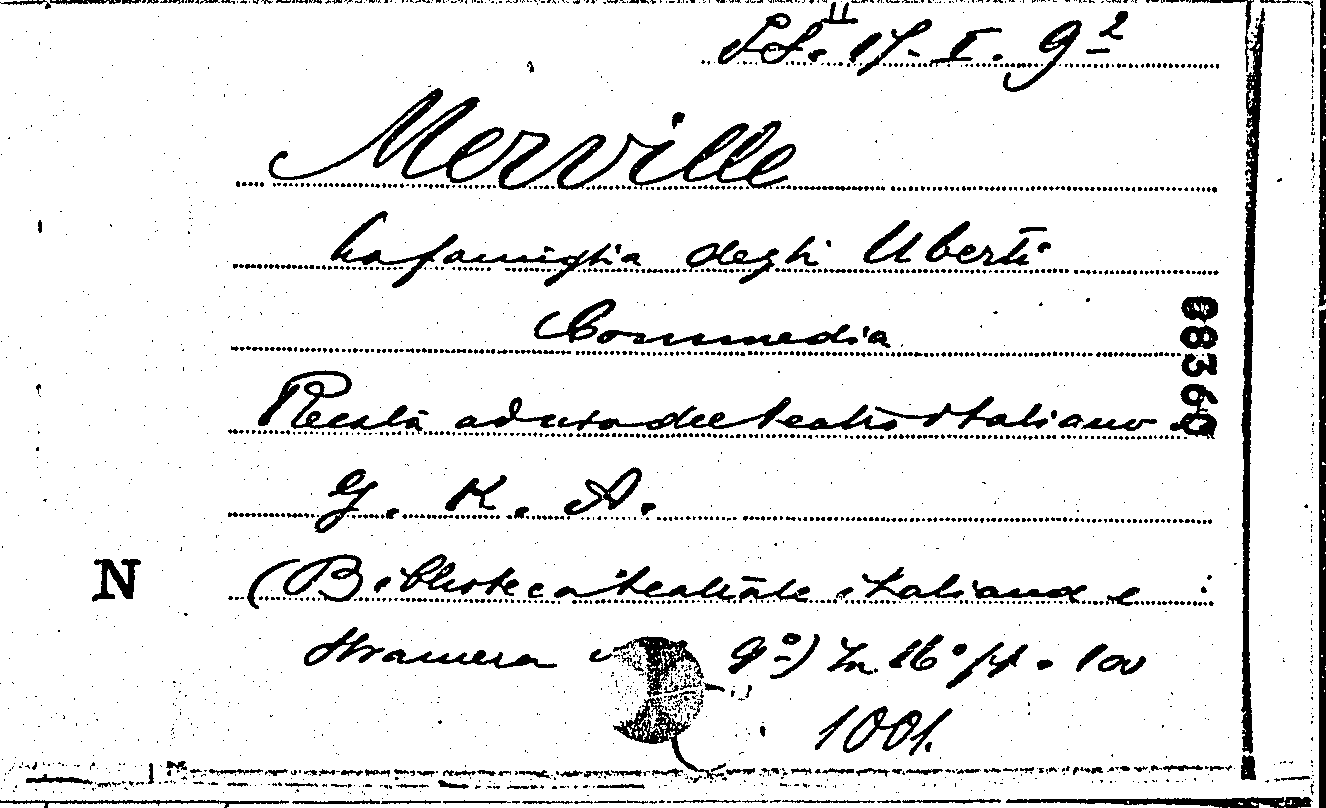 Merville
La famiglia degli Uberti
Commedia
88360
Recata ad uso del teatro italiano da
G. K. A.
N
(Biblioteca teatrale italiana e
straniera 9º) In 16º pp. 100
1001.